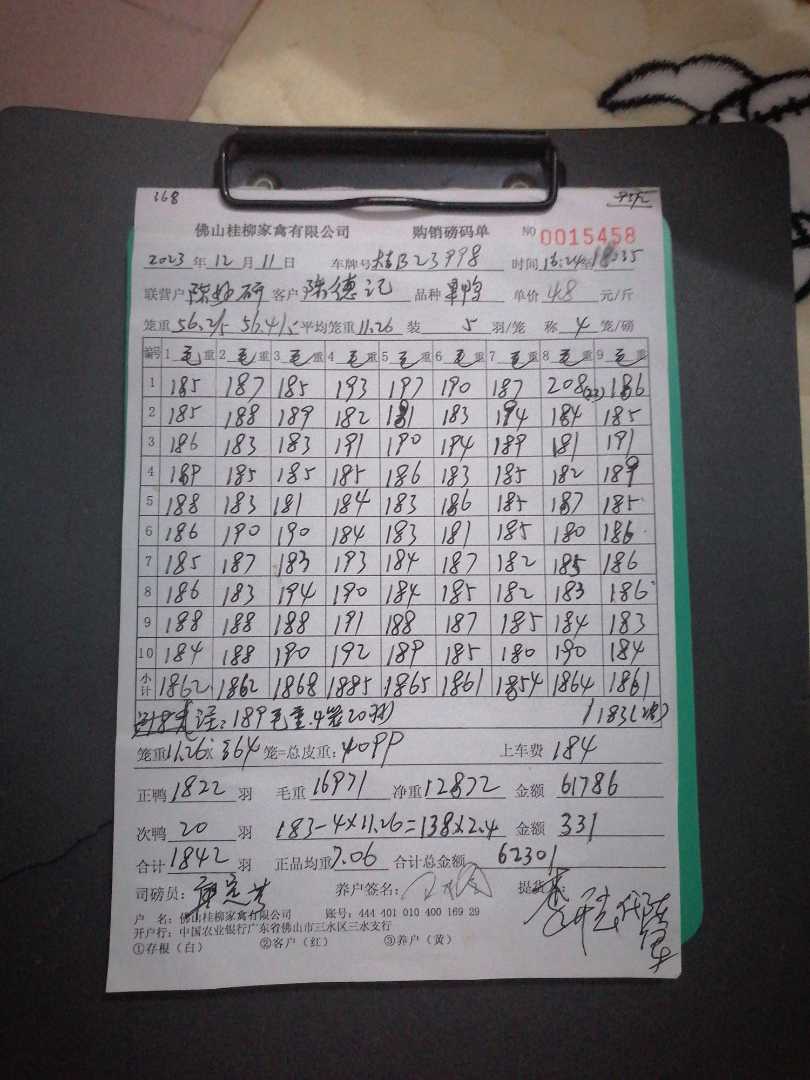 368
佛山桂柳家禽有限公司 购销磅码单 NO 0015458
2023 年 12 月 11 日 车牌号 B23998 时间 16:24 至 18:35
联营户 陈 研 客户 陈德记 品种 鸭 单价 4.8 元/斤
笼重 56.2/5 56.4/5 平均笼重 11.26 装 5 羽/笼 称 4 笼/磅
编号 1 毛 重 2 毛 重 3 毛 重 4 毛 重 5 毛 重 6 毛 重 7 毛 重 8 毛 重 9 毛 重
1 185 187 185 193 197 190 187 208(22) 186
2 185 188 189 182 181 183 194 184 185
3 186 183 183 191 190 194 189 181 191
4 189 185 185 185 186 183 185 182 189
5 188 183 181 184 183 186 185 187 185
6 186 190 190 184 183 181 185 180 186
7 185 187 183 193 184 187 182 185 186
8 186 183 194 190 184 185 182 183 186
9 188 188 188 191 188 187 185 184 183
10 184 188 190 192 189 185 180 190 184
小计 1862 1862 1868 1885 1865 1861 1854 1864 1861
注: 189毛重.4笼20羽 183(次)
笼重 11.26 x 364 笼=总皮重: 4099 上车费 184
正鸭 1822 羽 毛重 16971 净重 12872 金额 61786
次鸭 20 羽 183-4×11.26=138×2.4 金额 331
合计 1842 羽 正品均重 7.06 合计总金额 62301
司磅员: 养户签名: 提货
户 名: 佛山桂柳家禽有限公司 账号: 444 401 010 400 169 29
开户行: 中国农业银行广东省佛山市三水区三水支行
①存根(白) ②客户(红) ③养户(黄)